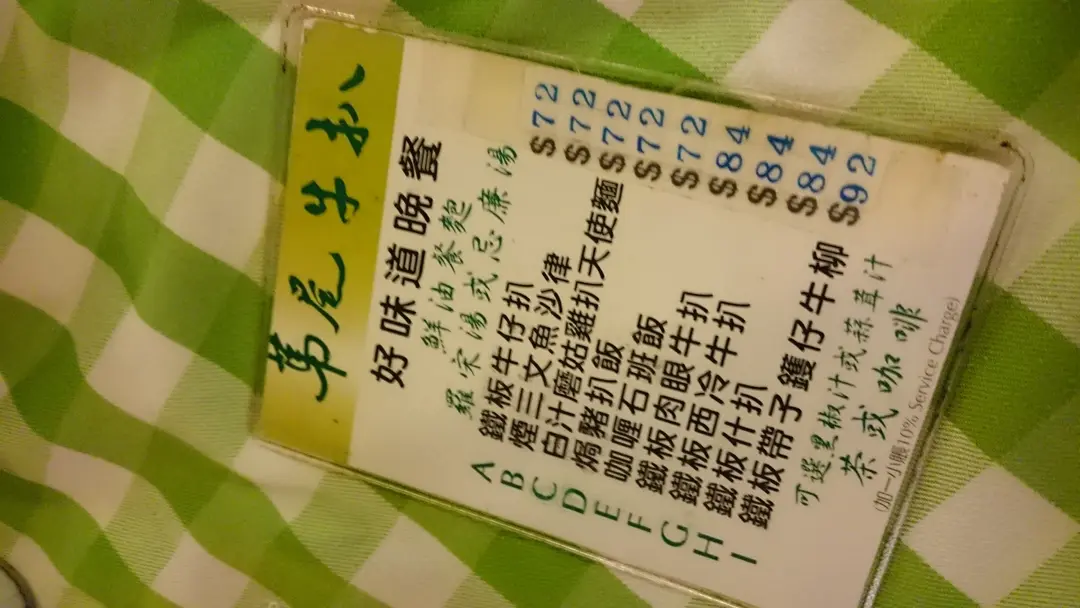 牛扒
好味道晚餐
鮮油餐麭
羅宋湯或忌廉湯
A 鐵板牛仔扒 $72
B 煙三文魚沙律 $72
C 白汁磨菇雞扒天使麵 $72
D 焗豬扒飯 $72
E 咖喱石班飯 $72
F 鐵板肉眼牛扒 $84
G 鐵板西冷牛扒 $84
H 鐵板什扒 $84
I 鐵板帶子鑊仔牛柳 $92
可選黑椒汁或蒜茸汁
茶或咖啡
(加一小賬10% Service Charge)